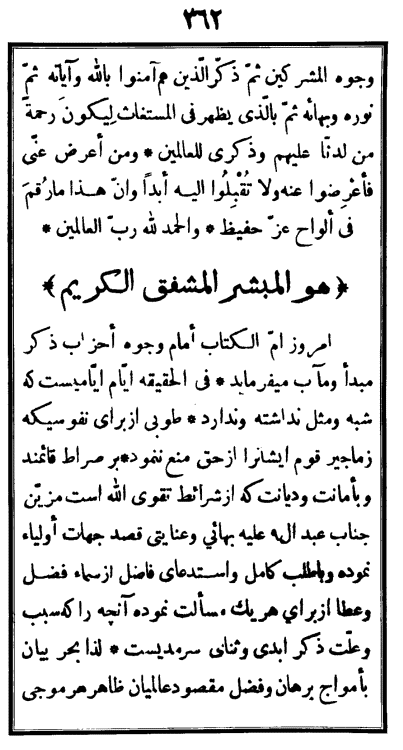 ٣٦٢
وجوه المشركين ثمّ ذكّر الّذين هم آمنوا بالله وآياته ثمّ
نوره وبهائه ثمّ بالّذى يظهر فى المستغاث لِيكونَ رحمةً
من لدنّا عليهم وذكرى للعالمين * ومن أعرض عنّى
فأعْرِضوا عنه ولا تُقْبِلُوا اليه أبداً وانّ هذا ما رُقمَ
فى ألواح عزّ حفيظ * والحمد لله ربّ العالمين *
﴿هو المبشر المشفق الكريم﴾
امروز امّ الكتاب أمام وجوه أحزاب ذكر
مبدأ ومآب ميفرمايد * فى الحقيقه ايّام ايّاميست كه
شبه ومثل نداشته وندارد * طوبى از براى نفوسيكه
زماجير قوم ايشانرا از حق منع ننمود * بر صراط قائمند
وبأمانت وديانت كه از شرائط تقوى الله است مزيّن
جناب عبد اله عليه بهائي وعنايتى قصد جهات أولياء
نموده وبا طلب كامل واستدعاى فاضل از سماء فضل
وعطا از براي هريك مسألت نموده آنچه را كه سبب
وعلّت ذكر ابدى وثناى سرمديست * لذا بحر بيان
بأمواج برهان وفضل مقصود عالميان ظاهر هر موجى